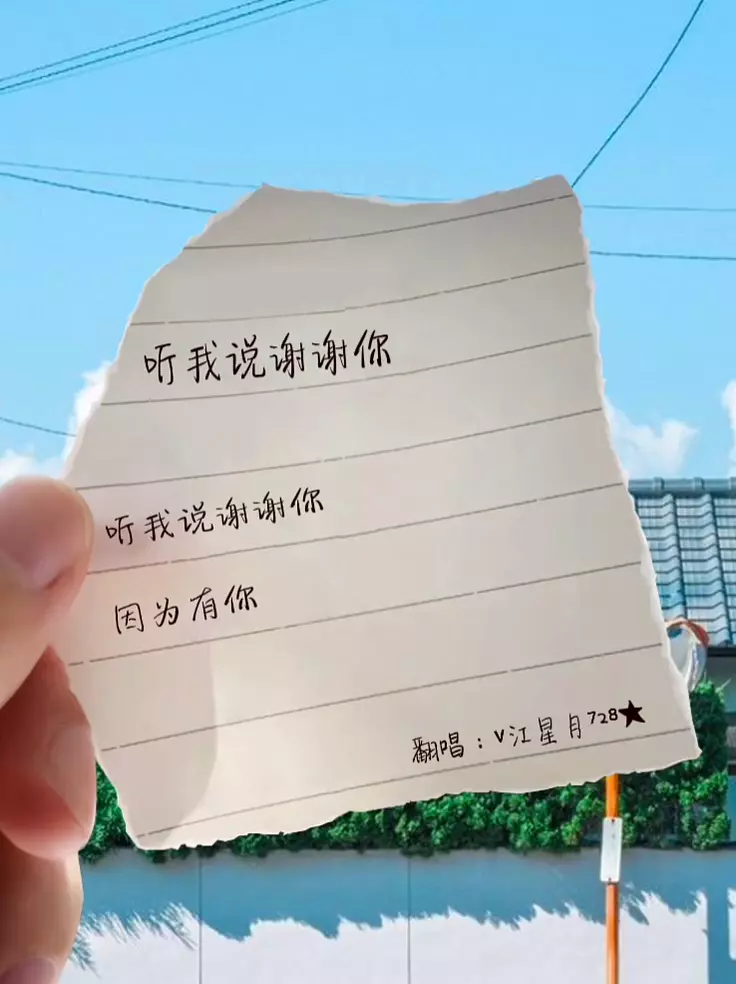 听我说谢谢你
听我说谢谢你
因为有你
翻唱：v江星月728★